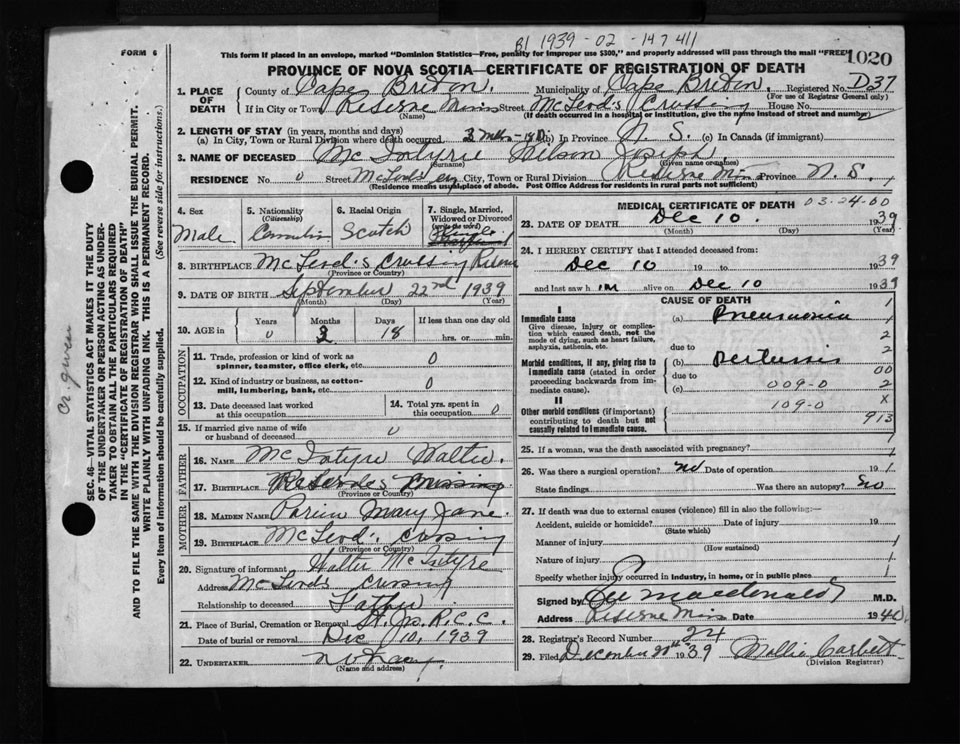 B1 1939-02-147411
FORM 6
This form if placed in an envelope, marked "Dominion Statistics—Free, penalty for improper use $300," and properly addressed will pass through the mail "FREE"
1020
PROVINCE OF NOVA SCOTIA—CERTIFICATE OF REGISTRATION OF DEATH
1. PLACE OF DEATH County of Cape Breton. Municipality of Cape Breton. Registered No. D37
(For use of Registrar General only)
If in City or Town Reserve Mines Street McLeod's Crossing House No.
(Name) (If death occurred in a hospital or institution, give the name instead of street and number)
2. LENGTH OF STAY (in years, months and days)
(a) In City, Town or Rural Division where death occurred (b) In Province N. S. (c) In Canada (if immigrant)
3. NAME OF DECEASED McIntyre Joseph
(Surname) (Given or names)
RESIDENCE No. 0 Street McLeods City, Town or Rural Division Reserve Mines Province N. S.
(Residence means usual place of abode. Post Office Address for residents in rural parts not sufficient)
4. Sex
Male
5. Nationality
(Citizenship)
Canadian
6. Racial Origin
Scotch
7. Single, Married, Widowed or Divorced
(write the word)
Single
8. BIRTHPLACE McLeod's Crossing Reserve
(Province or Country)
9. DATE OF BIRTH September 22nd 1939
(Month) (Day) (Year)
10. AGE in Years Months Days If less than one day old
0 2 18 hrs. or min.
OCCUPATION
11. Trade, profession or kind of work as spinner, teamster, office clerk, etc. 0
12. Kind of industry or business, as cotton-mill, lumbering, bank, etc. 0
13. Date deceased last worked at this occupation
14. Total yrs. spent in this occupation 0
15. If married give name of wife or husband of deceased 0
FATHER
16. NAME McIntyre Walter
17. BIRTHPLACE Crossing
(Province or Country)
MOTHER
18. MAIDEN NAME Mary Jane
19. BIRTHPLACE McLeod's Crossing
(Province or Country)
20. Signature of informant Walter McIntyre
Address McLeods Crossing
Relationship to deceased Father
21. Place of Burial, Cremation or Removal St. Jos. R.C.C.
Date of burial or removal Dec 10, 1939
22. UNDERTAKER
(Name and address)
MEDICAL CERTIFICATE OF DEATH 03-24-00
23. DATE OF DEATH Dec 10. 1939
(Month) (Day) (Year)
24. I HEREBY CERTIFY that I attended deceased from:
Dec 10 19 to 1939
and last saw him alive on Dec 10 1939
CAUSE OF DEATH
I
Immediate cause
Give disease, injury or complication which caused death, not the mode of dying, such as heart failure, asphyxia, asthenia, etc.
(a) Pneumonia 1
2
due to 2
Morbid conditions, if any, giving rise to immediate cause (stated in order proceeding backwards from immediate cause).
(b) Pertussis
due to 00
(c) 009-0 2
II
109-0 X
Other morbid conditions (if important) contributing to death but not causally related to immediate cause.
913
25. If a woman, was the death associated with pregnancy?
26. Was there a surgical operation? no Date of operation 19
State findings Was there an autopsy? no
27. If death was due to external causes (violence) fill in also the following:—
Accident, suicide or homicide? Date of injury 19
(State which)
Manner of injury 1
(How sustained)
Nature of injury 1
Specify whether injury occurred in industry, in home, or in public place 1
Signed by Macdonald M.D.
Address Reserve Mines Date 1940
28. Registrar's Record Number 24
29. Filed December 20th 1939 Mollie Corbett
(Division Registrar)
SEC. 46—VITAL STATISTICS ACT MAKES IT THE DUTY
OF THE UNDERTAKER OR PERSON ACTING AS UNDER-
TAKER TO OBTAIN ALL THE PARTICULARS REQUIRED
IN THE "CERTIFICATE OF REGISTRATION OF DEATH"
AND TO FILE THE SAME WITH THE DIVISION REGISTRAR WHO SHALL ISSUE THE BURIAL PERMIT.
WRITE PLAINLY WITH UNFADING INK. THIS IS A PERMANENT RECORD.
Every item of information should be carefully supplied. (See reverse side for instructions.)